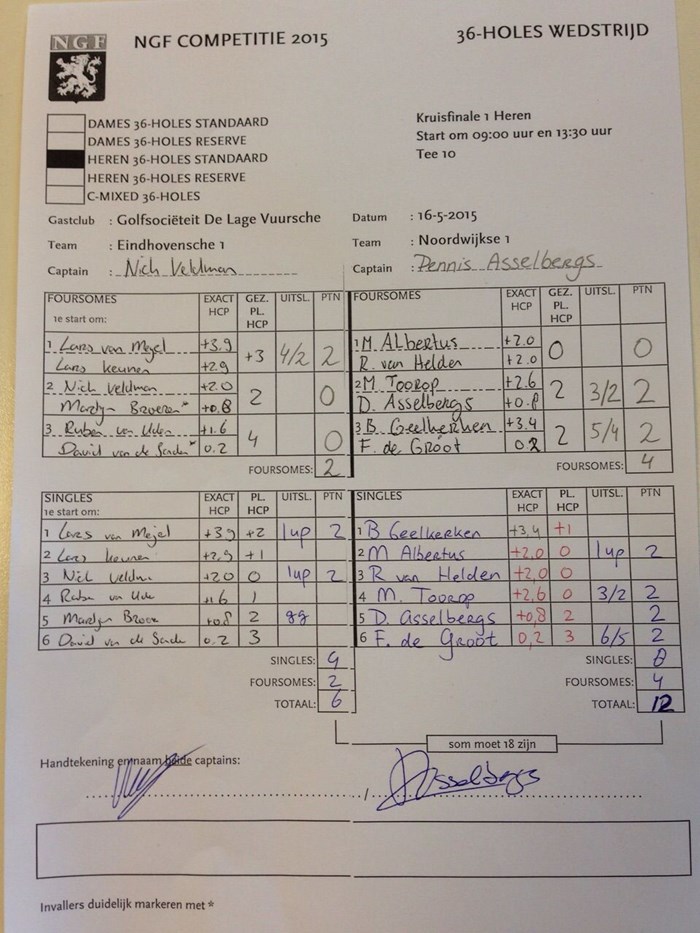 NGF NGF COMPETITIE 2015 36-HOLES WEDSTRIJD
DAMES 36-HOLES STANDAARD
DAMES 36-HOLES RESERVE
HEREN 36-HOLES STANDAARD
HEREN 36-HOLES RESERVE
C-MIXED 36-HOLES
Kruisfinale 1 Heren
Start om 09:00 uur en 13:30 uur
Tee 10
Gastclub : Golfsociëteit De Lage Vuursche Datum : 16-5-2015
Team : Eindhovensche 1 Team : Noordwijkse 1
Captain : Nich Veldman Captain : Dennis Asselbergs
FOURSOMES EXACT HCP GEZ. PL. HCP UITSL. PTN FOURSOMES EXACT HCP GEZ. PL. HCP UITSL. PTN
1e start om:
1 Lars van Meijel +3.9 +3 4/2 2 1 M. Albertus +2.0 0 0
Lars keunen +2.9 R. van Helden +2.0
2 Nich Veldman +2.0 2 0 2 M. Toorop +2.6 2 3/2 2
Martijn Broeren* +0.8 D. Asselbergs +0.8
3 Ruben van Uden +1.6 4 0 3 B. Geelkerken +3.4 2 5/4 2
David van de Sande* 0.2 F. de Groot 0.2
FOURSOMES: 2 FOURSOMES: 4
SINGLES EXACT HCP PL. HCP UITSL. PTN SINGLES EXACT HCP PL. HCP UITSL. PTN
1e start om:
1 Lars van Meijel +3.9 +2 1up 2 1 B Geelkerken +3,4 +1
2 Lars keunen +2,9 +1 2 M Albertus +2,0 0 1up 2
3 Nich Veldman +2.0 0 1up 2 3 R van Helden +2,0 0
4 Ruben van Uden +1.6 1 4 M. Toorop +2,6 0 3/2 2
5 Martijn +0.8 2 5 D. Asselbergs +0,8 2 2
6 David van de Sande 0.2 3 6 F. de Groot 0,2 3 6/5 2
SINGLES: 4 SINGLES: 8
FOURSOMES: 2 FOURSOMES: 4
TOTAAL: 6 TOTAAL: 12
som moet 18 zijn
Handtekening en naam beide captains:
/ DAsselbergs
Invallers duidelijk markeren met *